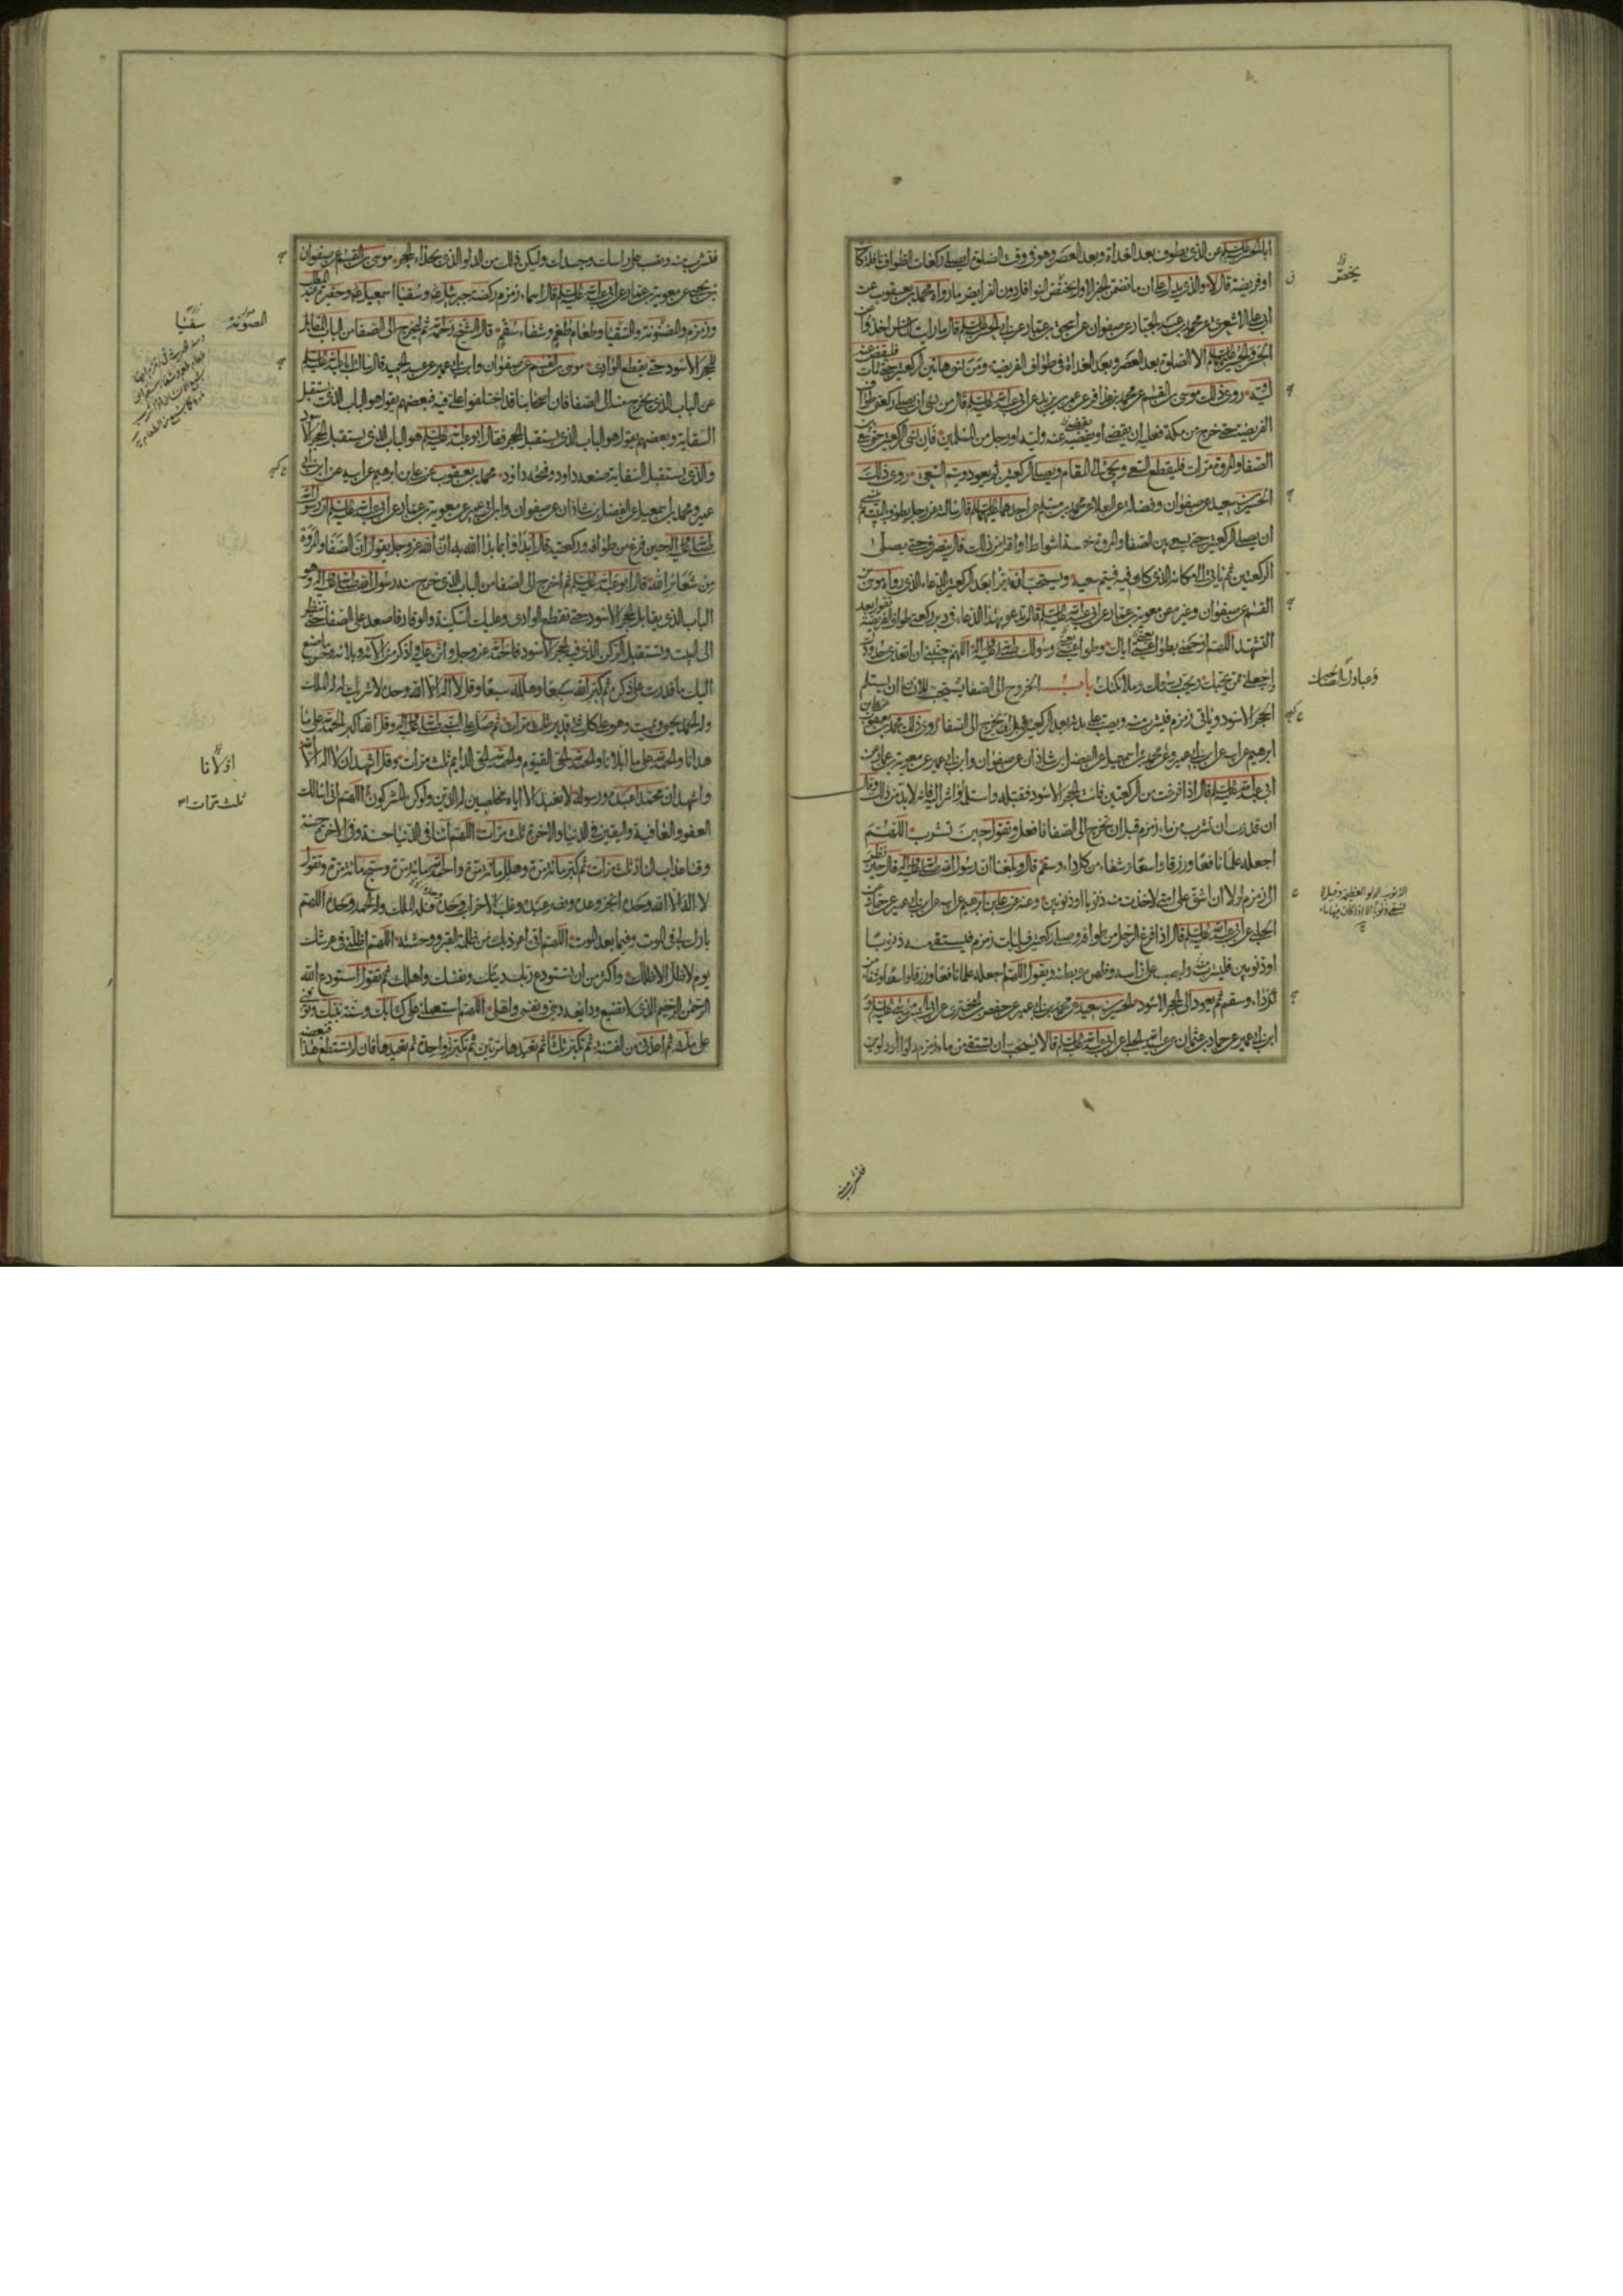 ابا الحسن عليه السلم عن الذى يطوف بعد الغداة وبعد العصر وهو فى وقت الصلوة ايصلى ركعات الطواف نافلة كانت
او فريضة قال لا والذى يدل على ان ما تضمن الخبر الاول يختص النوافل دون الفرايض ما رواه محمد بن يعقوب عن
ابى على الاشعرى عن محمد بن عبد الجبار عن صفوان عن اسحق بن عمار عن ابى الحسن عليه السلم قال ما رايت الناس اخذوا عن
الحسن والحسين عليهما السلم الا الصلوة بعد العصر وبعد الغداة فى طواف الفريضة ومن نسى هاتين الركعتين حتى مات فليقض عنه
وليه روى ذلك موسى بن القسم عن محمد بن عمر بن يزيد عن ابى عبد الله عليه السلم قال من نسى ان يصلى ركعتى طواف
الفريضة حتى خرج من مكة فعليه ان يقضى او يقضى عنه وليه او رجل من المسلمين فان نسى الركعتين حتى سعى بين
الصفا والمروة مرات فليقطع السعى ويجئ الى المقام ويصلى الركعتين ثم يعود ويتم السعى روى ذلك
الحسين بن سعيد عن صفوان وفضالة عن العلاء عن محمد بن مسلم عن احدهما عليهما السلم قال سالته عن رجل يطوف بالبيت ثم ينسى
ان يصلى الركعتين حتى يسعى بين الصفا والمروة خمسة اشواط او اقل من ذلك قال ينصرف حتى يصلى
الركعتين ثم ياتى المكان الذى كان فيه فيتم سعيه ويستحب ان يدعو بعد الركعتين بالدعاء الذى رواه موسى بن
القسم عن صفوان وغيره عن معوية بن عمار عن ابى عبد الله عليه السلم قال تدعو بهذا الدعاء فى دبر ركعتى طواف الفريضة تقول بعد
التشهد اللهم ارحمنى بطواعيتى اياك وطواعيتى رسولك صلى الله عليه واله اللهم جنبنى ان اتعدى حدودك
واجعلنى ممن يحبك ويحب رسولك وملائكتك باب الخروج الى الصفا يستحب للانسان ان يستلم
الحجر الاسود وياتى زمزم فيشرب منه ويصب على بدنه بعد الركعتين قبل ان يخرج الى الصفا روى ذلك محمد بن يعقوب عن على بن
ابرهيم عن ابيه عن ابن ابى عمير ومحمد بن اسمعيل عن الفضل بن شاذان عن صفوان وابن ابى عمير عن معوية بن عمار عن
ابى عبد الله عليه السلم قال اذا فرغت من الركعتين فائت الحجر الاسود فقبله واستلمه او اشر اليه فانه لا بد من ذلك وقال
ان قدرت ان تشرب من ماء زمزم قبل ان تخرج الى الصفا فافعل وتقول حين تشرب اللهم
اجعله علما نافعا ورزقا واسعا وشفاء من كل داء وسقم قال وبلغنا ان رسول الله صلى الله عليه واله قال حين نظر
الى زمزم لولا ان اشق على امتى لاخذت منه ذنوبا او ذنوبين وعنه عن على بن ابرهيم عن ابيه عن ابن ابى عمير عن حماد عن
الحلبى عن ابى عبد الله عليه السلم قال اذا فرغ الرجل من طوافه وصلى ركعتين فليات زمزم فيستقى منه ذنوبا
او ذنوبين فليشرب منه وليصب على راسه وظهره وبطنه ويقول اللهم اجعله علما نافعا ورزقا واسعا وشفاء من
كل داء وسقم ثم يعود الى الحجر الاسود الحسين بن سعيد عن محمد بن ابى عمير عن حفص بن البخترى عن ابى الحسن موسى عليه السلم و
ابن ابى عمير عن حماد بن عثمان عن عبيد الله الحلبى عن ابى عبد الله عليه السلم قالا يستحب ان تستقى من ماء زمزم دلوا او دلوين
يختص
وعبادك الصالحين
الذنوب الدلو العظيم وقيل لا
تسمى ذنوبا الا اذا كان فيها ماء
فتشرب منه
فتشرب منه وتصب على راسك وجسدك وليكن ذلك من الدلو الذى بحذاء الحجر موسى بن القسم عن صفوان
بن يحيى عن معوية بن عمار عن ابى عبد الله عليه السلم قال اسماء زمزم ركضة جبرئيل وسقيا اسمعيل وحفيرة عبد المطلب
وزمزم والمضنونة والسقيا وطعام طعم وشفاء سقم قال الشيخ رحمه الله ثم ليخرج الى الصفا من الباب المقابل
للحجر الاسود حتى يقطع الوادى موسى بن القسم عن صفوان وابن ابى عمير عن عبد الحميد قال سالت ابا عبد الله عليه السلم
عن الباب الذى يخرج منه الى الصفا فان اصحابنا قد اختلفوا على فيه فبعضهم يقول هو الباب الذى يستقبل
السقاية وبعضهم يقول هو الباب الذى يستقبل الحجر فقال ابو عبد الله عليه السلم هو الباب الذى يستقبل الحجر الاسود
والذى يستقبل السقاية صنعه داود وفتحه داود محمد بن يعقوب عن على بن ابرهيم عن ابيه عن ابن ابى
عمير ومحمد بن اسمعيل عن الفضل بن شاذان عن صفوان وابن ابى عمير عن معوية بن عمار عن ابى عبد الله عليه السلم ان رسول الله
صلى الله عليه واله حين فرغ من طوافه وركعتيه قال ابدا وا بما بدا الله به ان الله عز وجل يقول ان الصفا والمروة
من شعائر الله قال ابو عبد الله عليه السلم ثم اخرج الى الصفا من الباب الذى خرج منه رسول الله صلى الله عليه واله وهو
الباب الذى يقابل الحجر الاسود حتى تقطع الوادى وعليك السكينة والوقار فاصعد على الصفا حتى تنظر
الى البيت وتستقبل الركن الذى فيه الحجر الاسود فاحمد الله عز وجل واثن عليه واذكر من الائه وبلائه وحسن ما صنع
اليك ما قدرت على ذكره ثم كبر الله سبعا وهلله سبعا وقل لا اله الا الله وحده لا شريك له له الملك
وله الحمد يحيى ويميت وهو على كل شئ قدير ثلث مرات ثم صل على النبى صلى الله عليه واله وقل الله اكبر الحمد لله على ما
هدانا والحمد لله على ما ابلانا والحمد لله الحى القيوم والحمد لله الحى الدايم ثلث مرات وقل اشهد ان لا اله الا الله
واشهد ان محمدا عبده ورسوله لا نعبد الا اياه مخلصين له الدين ولو كره المشركون اللهم انى اسالك
العفو والعافية واليقين فى الدنيا والاخرة ثلث مرات اللهم اتنا فى الدنيا حسنة وفى الاخرة حسنة
وقنا عذاب النار ثلث مرات ثم كبر مائة مرة وهلل مائة مرة واحمد الله مائة مرة وسبح مائة مرة وتقول
لا اله الا الله وحده انجز وعده ونصر عبده وغلب الاحزاب وحده فله الملك وله الحمد وحده اللهم
بارك لى فى الموت وفيما بعد الموت اللهم انى اعوذ بك من ظلمة القبر ووحشته اللهم اظلنى فى عرشك
يوم لا ظل الا ظلك واكثر من ان تستودع ربك دينك ونفسك واهلك ثم تقول استودع الله
الرحمن الرحيم الذى لا تضيع ودايعه دينى ونفسى واهلى اللهم استعملنى على كتابك وسنة نبيك وتوفنى
على ملته ثم اعذنى من الفتنة ثم تكبر ثلثا ثم تعيدها مرتين ثم تكبر واحدة ثم تعيدها فان لم تستطع هذا فبعضه
المصونة سقيا
اولانا
ثلث مرات